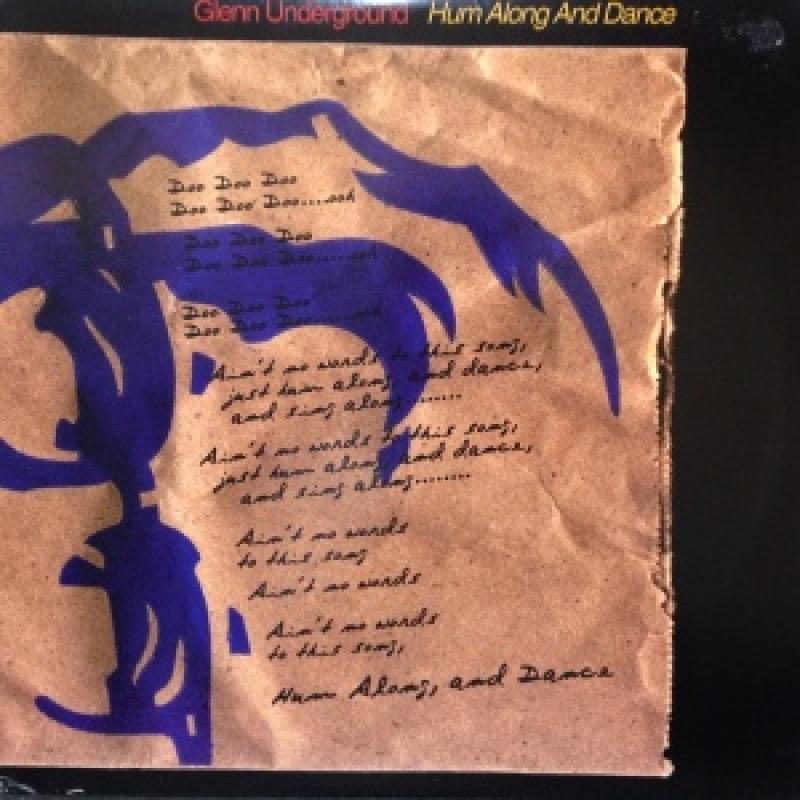 Glenn Underground Hum Along And Dance
Doo Doo Doo
Doo Doo Doo....ooh
Doo Doo Doo
Doo Doo Doo.......ooh
Doo Doo Doo
Doo Doo Doo.......ooh
Ain't no words to this song,
just hum along, and dance,
and sing along.......
Ain't no words to this song,
just hum along and dance,
and sing along........
Ain't no words
to this song
Ain't no words
Ain't no words
to this song,
Hum Along, and Dance